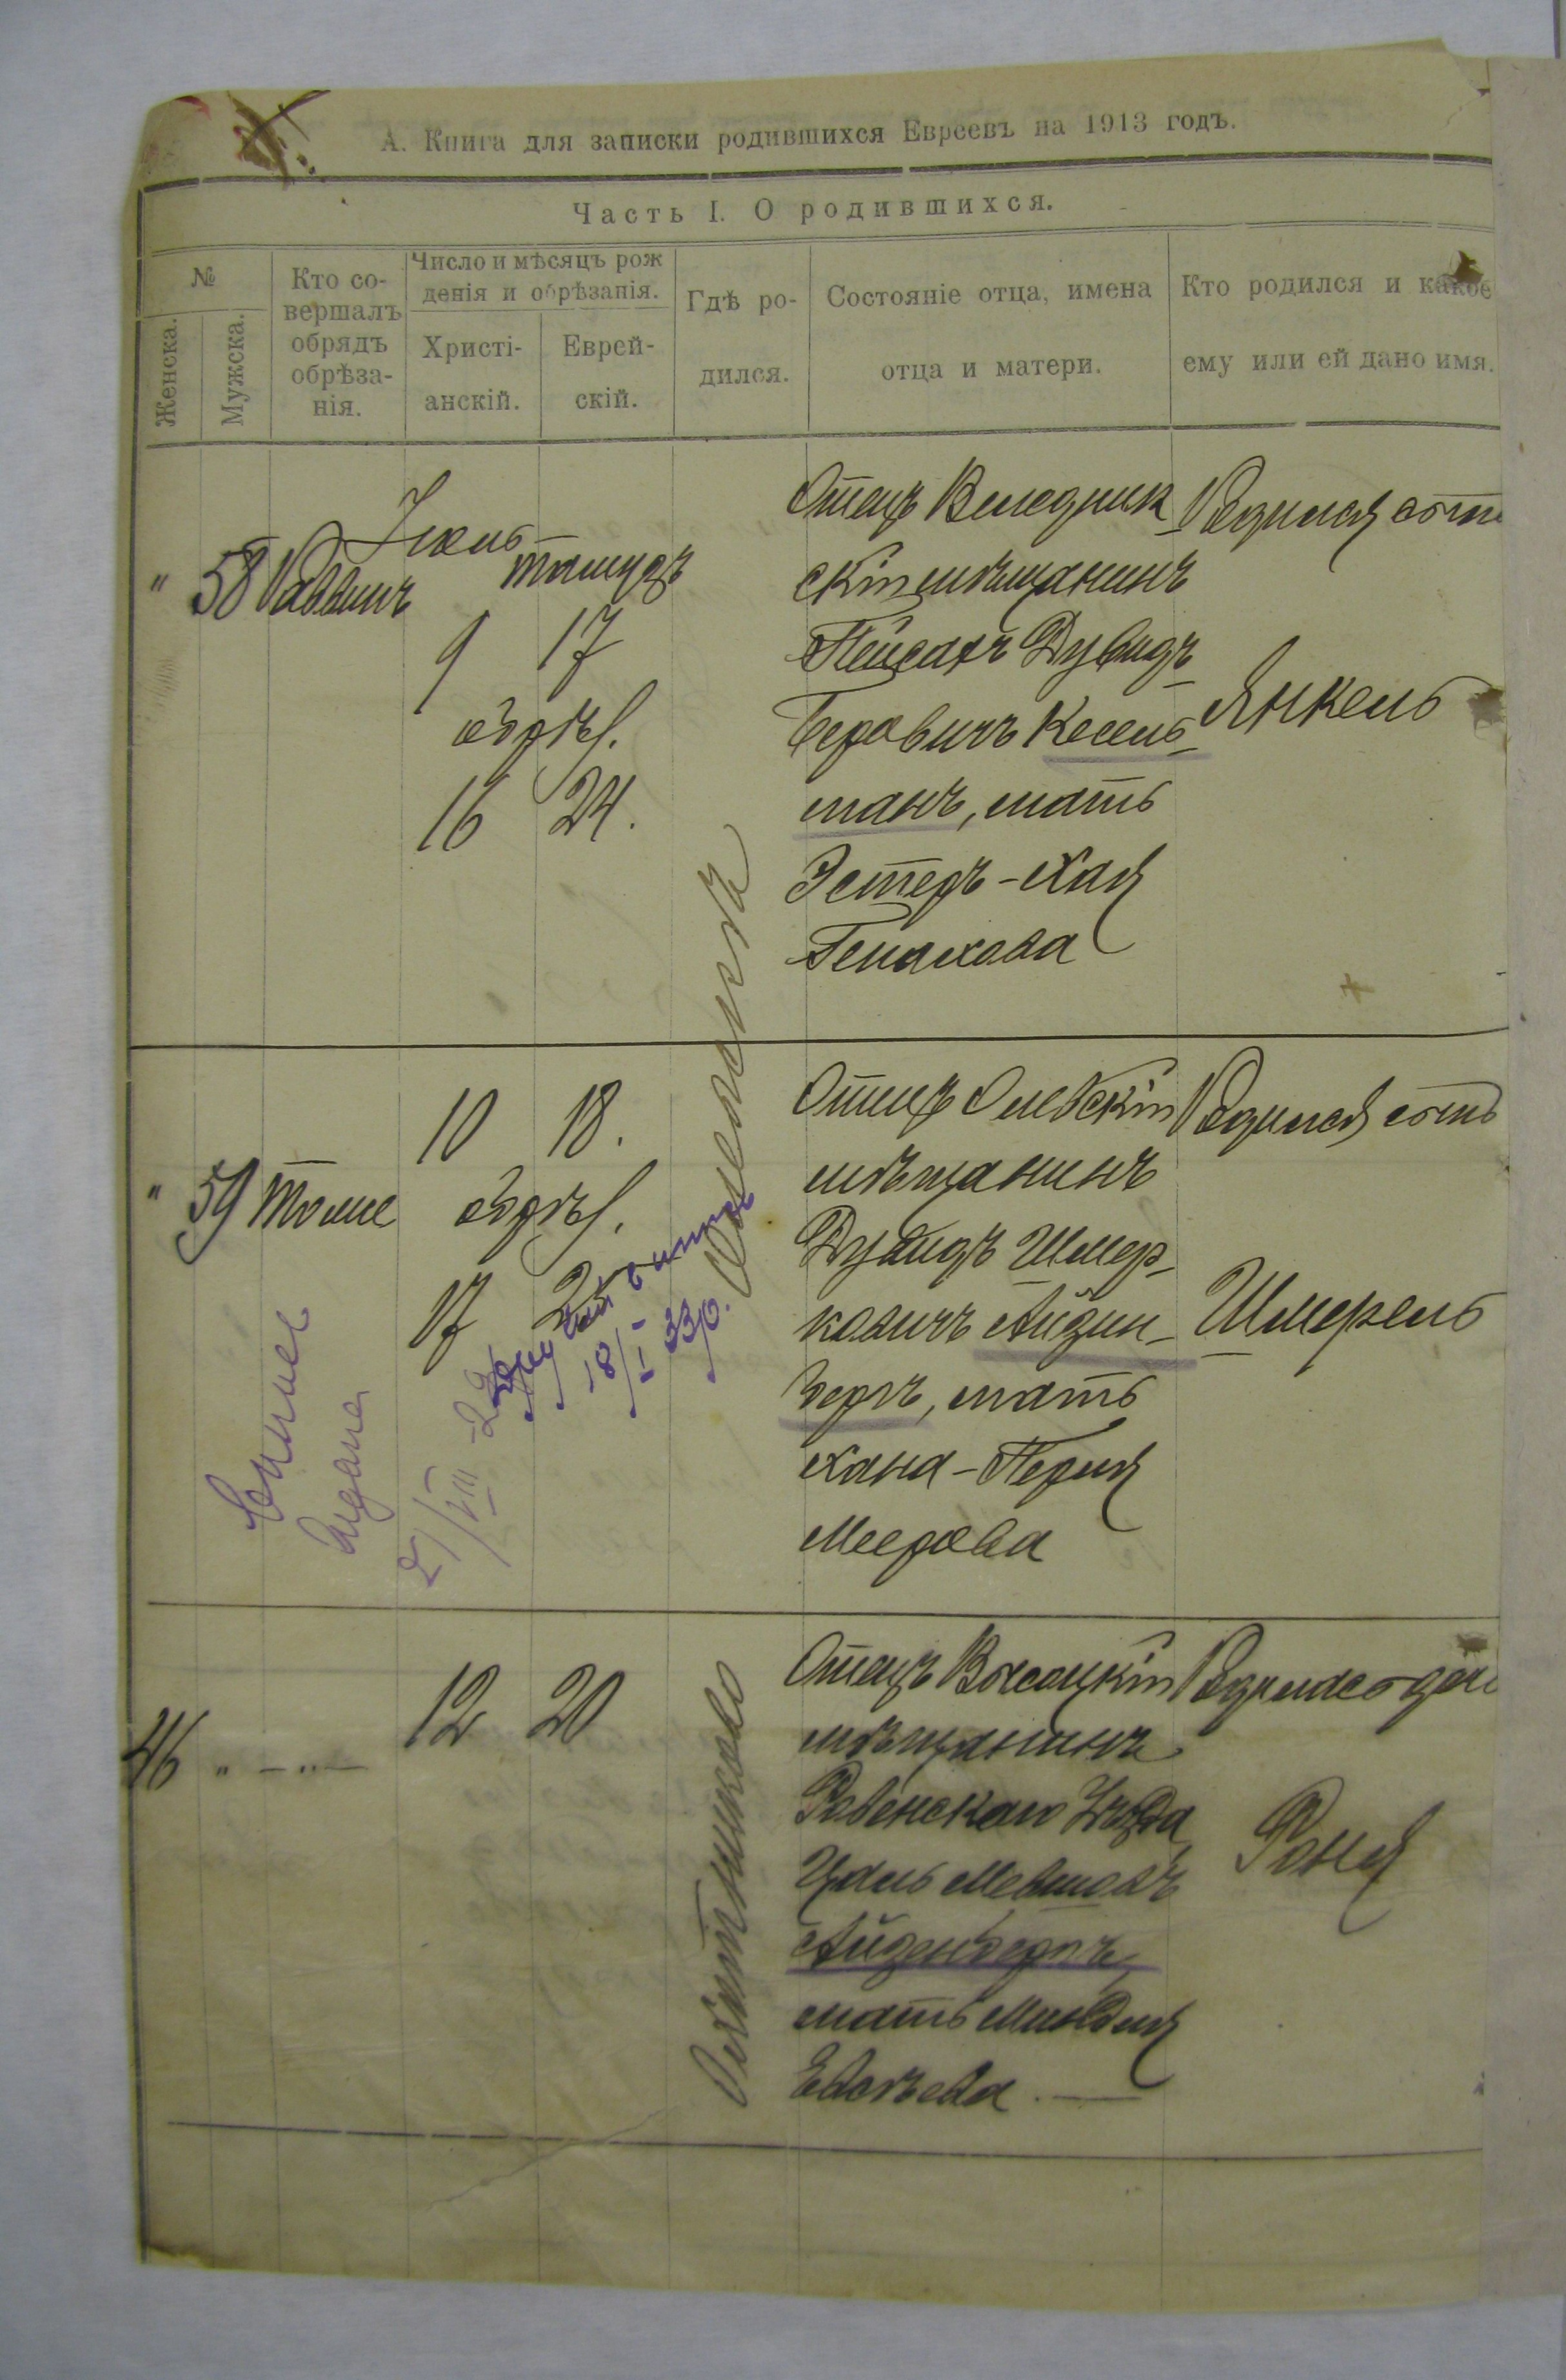 А. Книга для записки родившихся Евреевъ на 1913 годъ.
Часть I. О родившихся.
№
Женска.
Мужска.
Кто со-
вершалъ
обрядъ
обрѣза-
нія.
Число и мѣсяцъ рож
денія и обрѣзанія.
Христі-
анскій.
Еврей-
скій.
Гдѣ ро-
дился.
Состояніе отца, имена
отца и матери.
Кто родился и какое
ему или ей дано имя.
" 58 Раввинъ
Іюль Тамузъ
9 17
обрѣз.
16 24.
Олевскъ
Отецъ Веледник
скій мѣщанинъ
Пейсахъ Дувидъ
Беровичъ Кесель-
манъ, мать
Эстеръ-Хая
Генахова
Родился сынъ
Янкель
" 59 Тоже
10 18.
обрѣз.
17 25
18/I 33р.
Отецъ Олевскій
мѣщанинъ
Дувидъ Шмер-
ковичъ Айзен-
бергъ, мать
Хана-Перля
Меерова
Родился сынъ
Шмерель
46 " — " —
12 20
Отецъ Высоцкій
мѣщанинъ
Ровенскаго Уѣзда
Айзенбергъ,
мать Миндля
Евсѣева
Родилась дочь
Роня